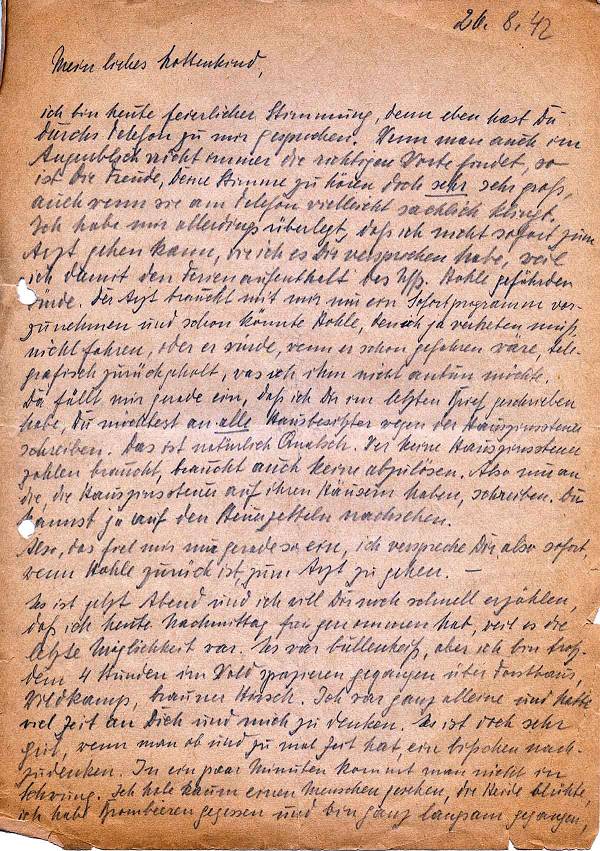 26. 8. 42
Mein liebes Lottenkind,
ich bin heute feierlicher Stimmung, denn eben hast Du
durchs Telefon zu mir gesprochen. Wenn man auch im
Augenblick nicht immer die richtigen Worte findet, so
ist die Freude, Deine Stimme zu hören doch sehr sehr groß,
auch wenn sie am Telefon vielleicht sachlich klingt.
Ich habe mir allerdings überlegt, daß ich nicht sofort zum
Arzt gehen kann, wie ich es Dir versprochen habe, weil
ich damit den Ferienaufenthalt des Uffz. Kohle gefährden
würde. Der Arzt braucht mit mir nur ein Sofortprogramm vor-
zunehmen und schon könnte Kohle, den ich ja vertreten muß,
nicht fahren, oder er würde, wenn er schon gefahren wäre, tele-
grafisch zurückgeholt, was ich ihm nicht antun möchte.
Da fällt mir gerade ein, daß ich Dir im letzten Brief geschrieben
habe, Du möchtest an alle Hausbesitzer wegen der Hauszinssteuer
schreiben. Das ist natürlich Quatsch. Wer keine Hauszinssteuer
zahlen braucht, braucht auch keine abzulösen. Also nur an
die, die Hauszinssteuer auf ihren Häusern haben, schreiben. Du
kannst ja auf den Steuerzetteln nachsehen.
Also, das fiel mir nur gerade so ein, ich verspreche Dir, also sofort,
wenn Kohle zurück ist, zum Arzt zu gehen. —
Es ist jetzt Abend und ich will Dir noch schnell erzählen,
daß ich heute Nachmittag frei genommen hab, weil es die
letzte Möglichkeit war. Es war bullenheiß, aber ich bin trotz-
dem 4 Stunden im Wald spazieren gegangen über Forsthaus,
Wildkamp, brauner Hirsch. Ich war ganz alleine und hatte
viel Zeit an Dich und mich zu denken. Es ist doch sehr
gut, wenn man ab und zu mal Zeit hat, ein bißchen nach-
zudenken. In ein paar Minuten kommt man nicht in
Schwung. Ich habe kaum einen Menschen gesehen, die Heide blühte,
ich habe Brombeeren gegessen und bin ganz langsam gegangen,